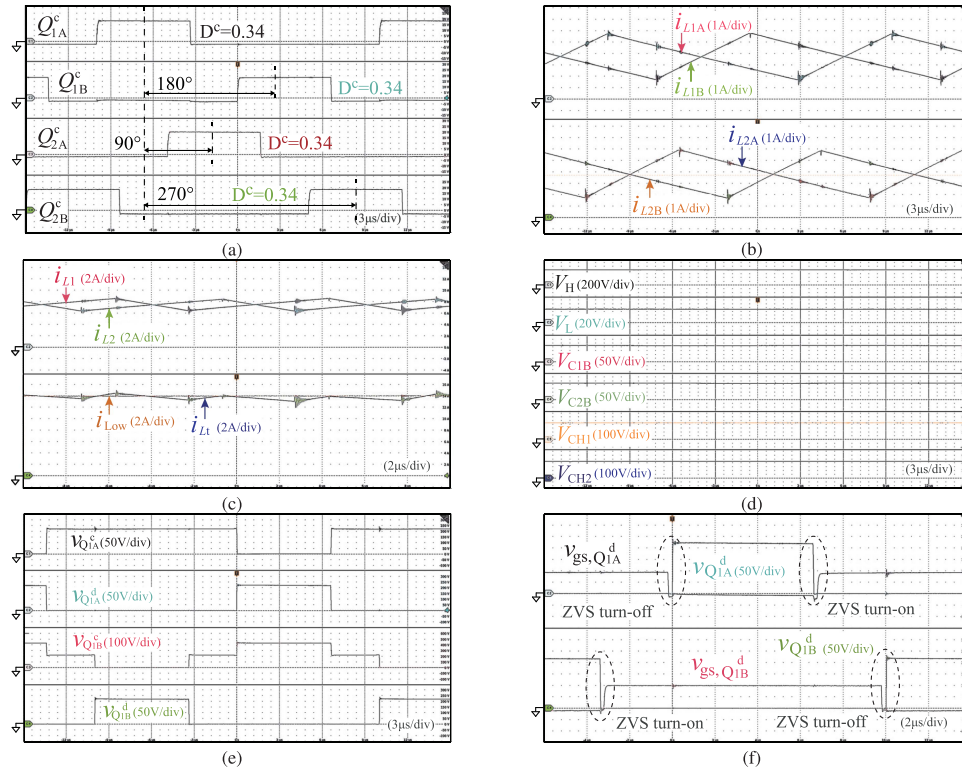 Q^c_1A
D^c=0.34
Q^c_1B
180°
D^c=0.34
Q^c_2A
90°
D^c=0.34
Q^c_2B
270°
D^c=0.34
(3μs/div)
(a)
i_L1A (1A/div)
i_L1B (1A/div)
i_L2A (1A/div)
i_L2B (1A/div)
(3μs/div)
(b)
i_L1 (2A/div)
i_L2 (2A/div)
i_Low (2A/div)
i_Lt (2A/div)
(2μs/div)
(c)
V_H (200V/div)
V_L (20V/div)
V_C1B (50V/div)
V_C2B (50V/div)
V_CH1 (100V/div)
V_CH2 (100V/div)
(3μs/div)
(d)
v_Q^c_1A (50V/div)
v_Q^d_1A (50V/div)
v_Q^c_1B (100V/div)
v_Q^d_1B (50V/div)
(3μs/div)
(e)
v_gs,Q^d_1A
v_Q^d_1A (50V/div)
ZVS turn-off
ZVS turn-on
v_Q^d_1B (50V/div)
v_gs,Q^d_1B
ZVS turn-on
ZVS turn-off
(2μs/div)
(f)